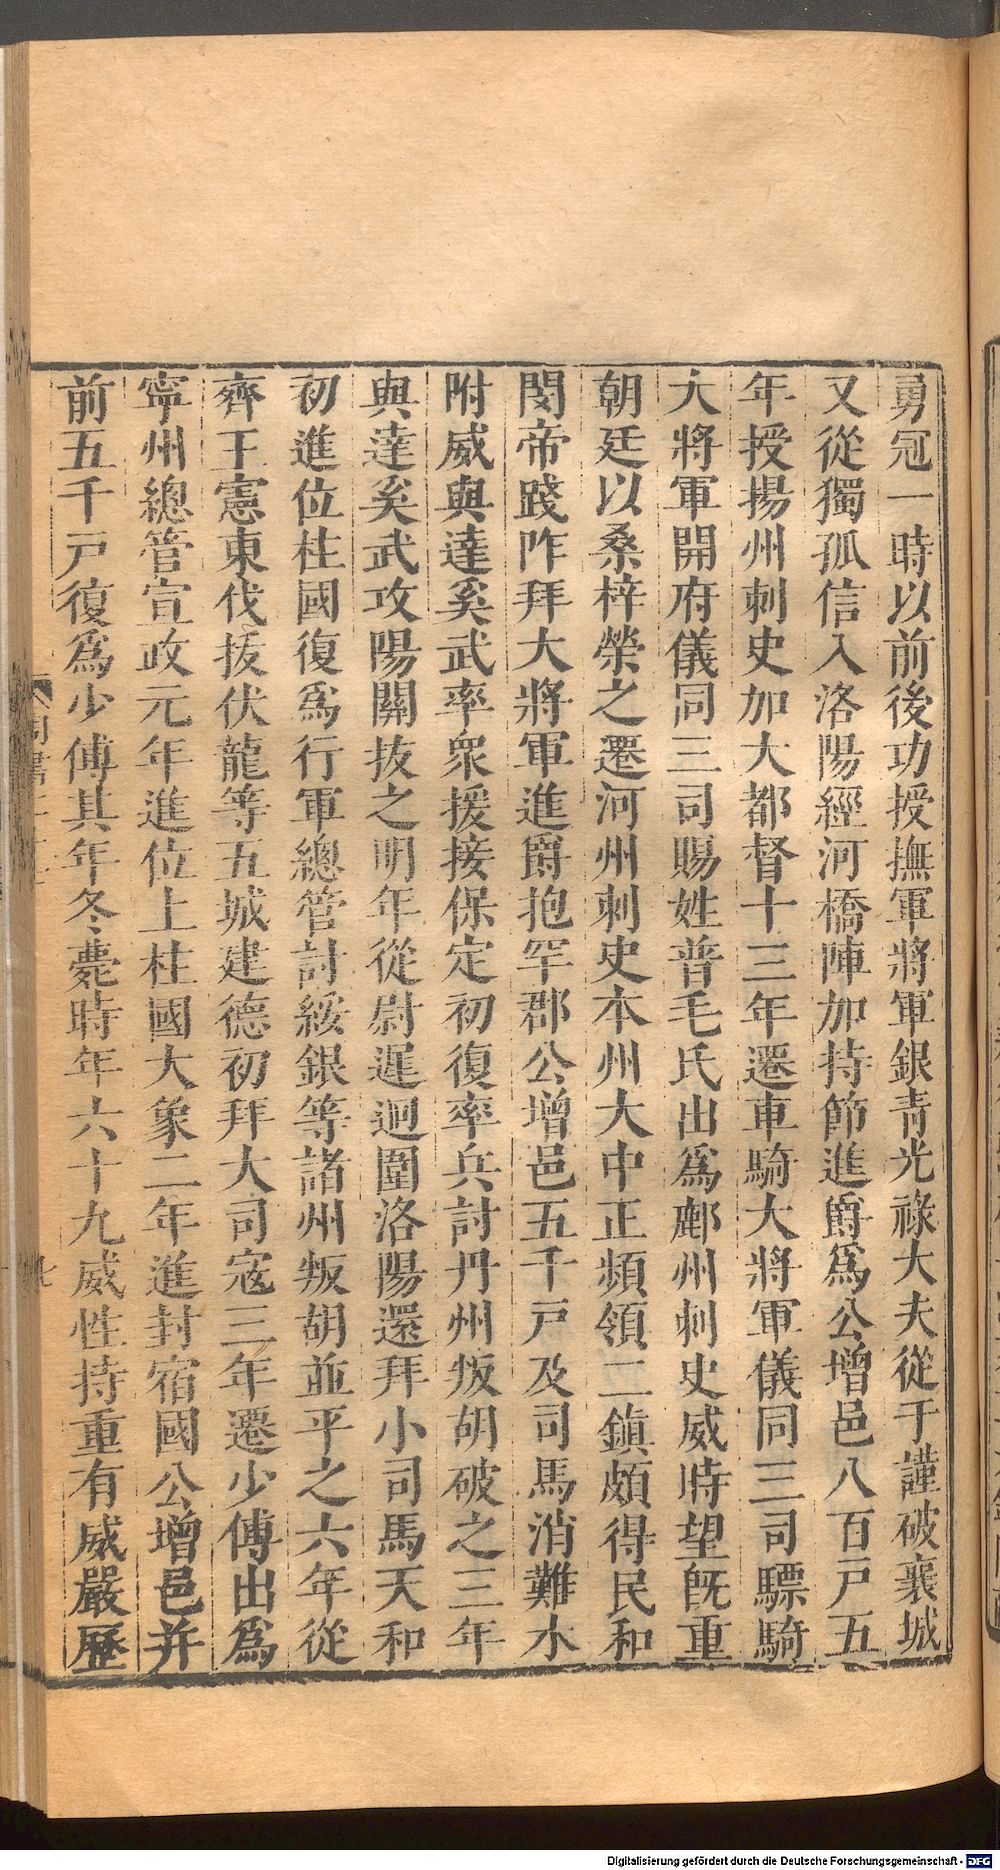 勇冠一時以前後功授撫軍將軍銀青光祿大夫從于謹破襄城
又從獨孤信入洛陽經河橋陣加持節進爵爲公增邑八百戸五
年授揚州刺史加大都督十三年遷車騎大將軍儀同三司驃騎
大將軍開府儀同三司賜姓普毛氏出爲鄜州刺史威時望旣重
朝廷以桑梓榮之遷河州刺史本州大中正頻領二鎮頗得民和
閔帝踐阼拜大將軍進爵抱罕郡公增邑五千戸及司馬消難水
附威與達奚武率衆援接保定初復率兵討丹州叛胡破之三年
與達奚武攻陽關拔之明年從尉遲迥圍洛陽還拜小司馬天和
初進位柱國復爲行軍總管討綏銀等諸州叛胡並平之六年從
齊王憲東伐拔伏龍等五城建德初拜大司寇三年遷少傅出爲
寧州總管宣政元年進位上柱國大象二年進封宿國公增邑并
前五千戸復爲少傅其年冬薨時年六十九威性持重有威嚴歷
Digitalisierung gefördert durch die Deutsche Forschungsgemeinschaft - DFG